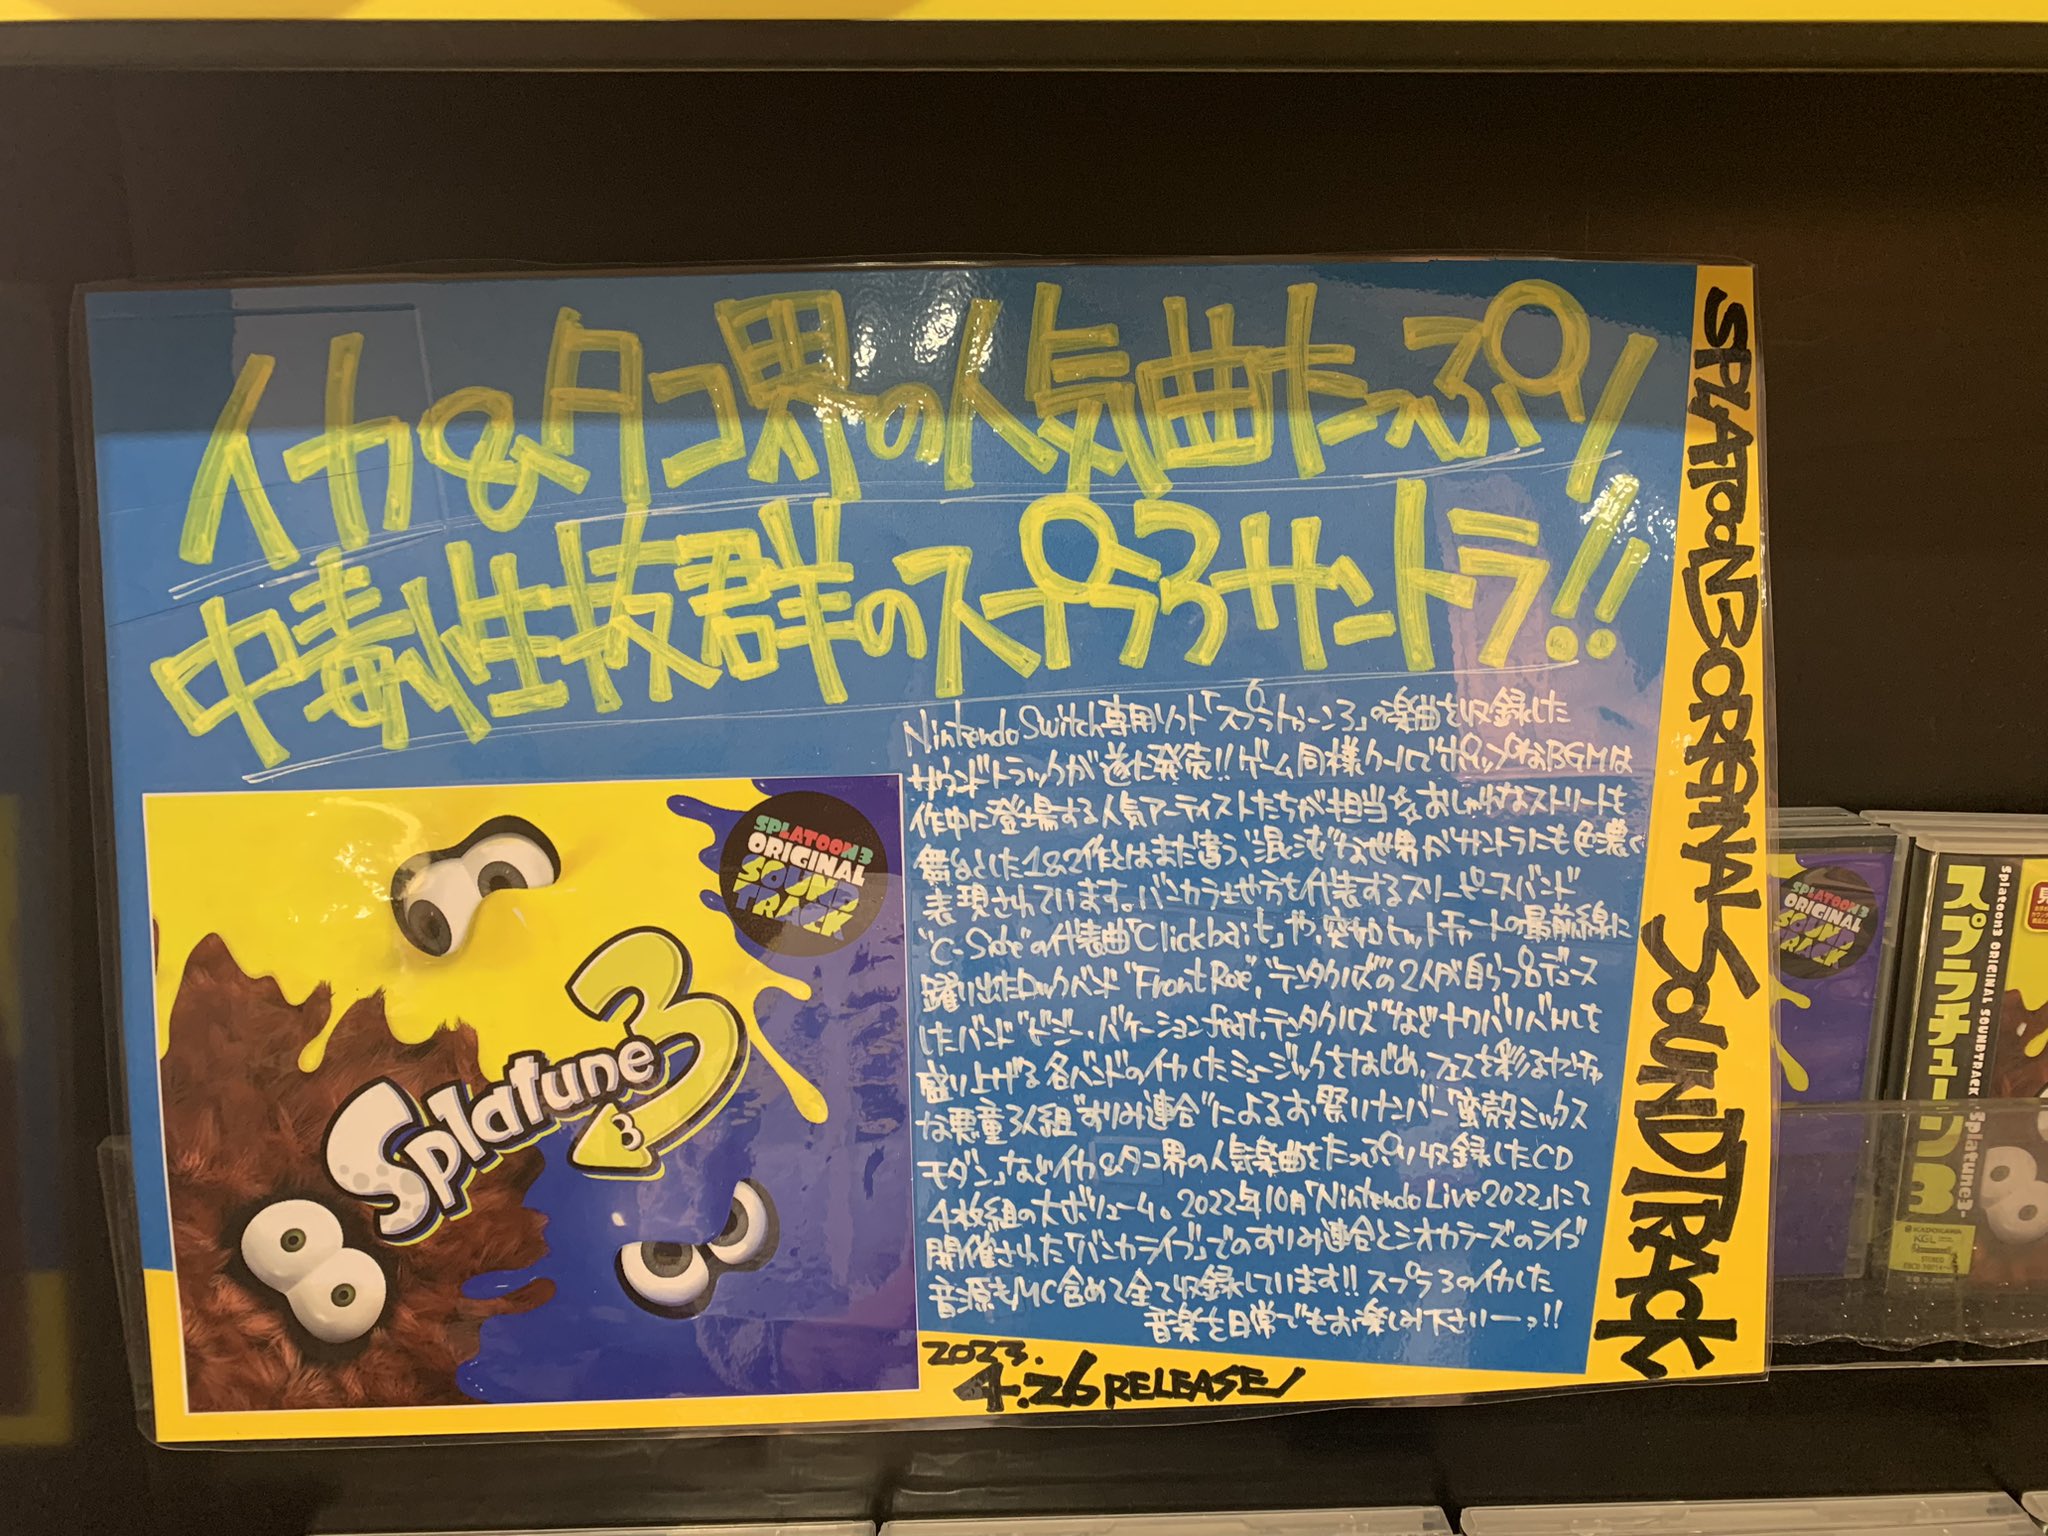 イカ&タコ界の人気曲たっぷり
中毒性抜群のスプラ3サントラ!!
SPLATOON3 ORIGINAL SOUNDTRACK
Nintendo Switch専用ソフト「スプラトゥーン3」の楽曲を収録した
サウンドトラックが遂に発売!!ゲーム同様クールでポップなBGMは
作中に登場する人気アーティストたちが担当☆おしゃれなストリートを
舞台とした1&2作とはまた違う、"混沌"な世界がサントラにも色濃く
表現されています。バンカラな世方を代表するスリーピースバンド
"C-Side"の代表曲「Clickbait」や、突如ヒットチャートの最前線に
躍り出たロックバンド"Front Roe"、テンタクルズの2人が自らプロデュース
したバンド"ドジー・バケーション feat.テンタクルズ"などナワバリバトルを
盛り上げる各バンドのイカしたミュージックをはじめ、フェスを彩るヤンチャ
な悪童3人組"すりみ連合"によるお祭りナンバー「蛮殻ミックス
モダン」などイカ&タコ界の人気楽曲をたっぷり収録したCD
4枚組の大ボリューム。2022年10月「Nintendo Live 2022」にて
開催された「バンカライブ」でのすりみ連合とシオカラーズのライブ
音源もMC含めて全て収録しています!! スプラ3のイカした
音楽を日常でもお楽しみ下さいーっ!!
SPLATOON3
ORIGINAL
SOUND
TRACK
Splatune
3
2023.
4.26 RELEASE
SPLATOON3
ORIGINAL
SOUND
TRACK
スプラチューン3
Splatoon3 ORIGINAL SOUNDTRACK -Splatune3-
KADOKAWA
KGL
STEREO